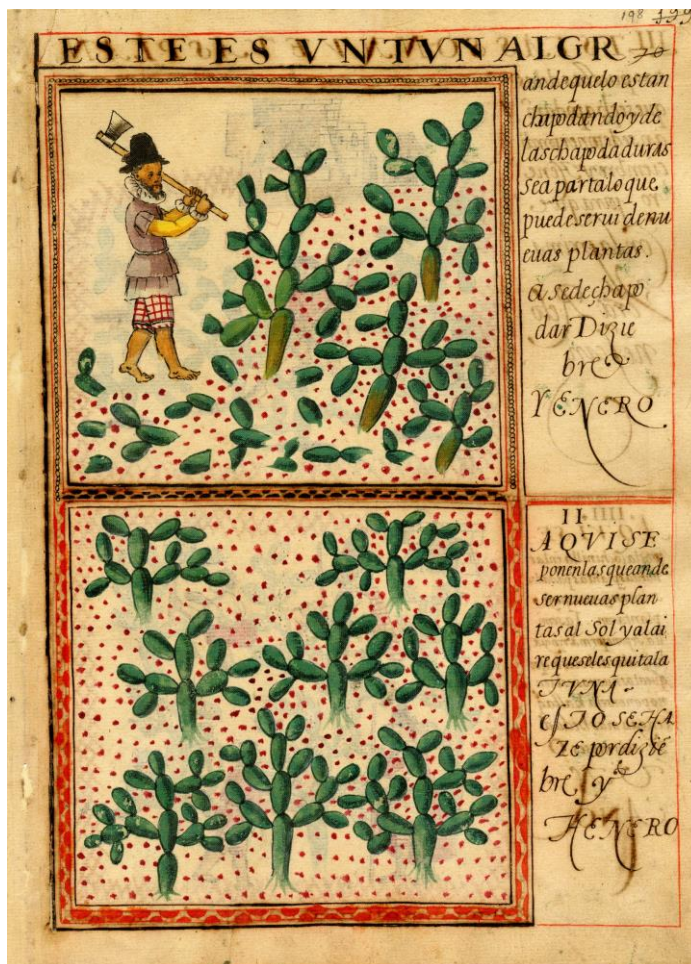 198 199
ESTE ES VN TVNAL GR
ande que lo estan
chapodando y de
las chapodaduras
se apartalo que
puede serui de nu
euas plantas.
a se de chapo
dar Dizie
bre &
YENERO
II
AQVI SE
ponen las que ande
ser nueuas plan
tas al Sol y alai
re que se les quita la
TVNA.
esTO SE HA
ZE por dizié
bre, y
HENERO